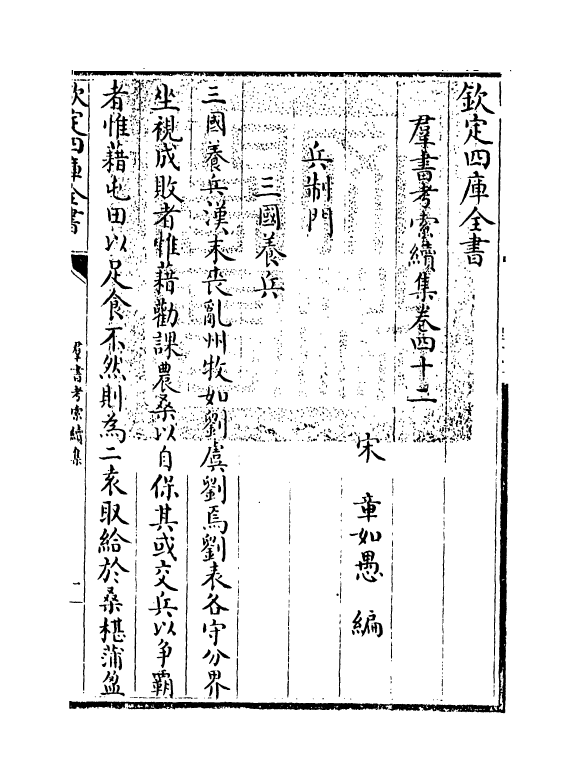 欽定四庫全書
羣書考索續集卷四十二
宋　章如愚　編
兵制門
三國養兵
三國養兵漢末喪亂州牧如劉虞劉焉劉表各守分界
坐視成敗者惟藉勸課農桑以自保其或交兵以争霸
者惟藉屯田以足食不然則為二袁取給於桑椹蒲盈
欽定四庫全書
羣書考索續集